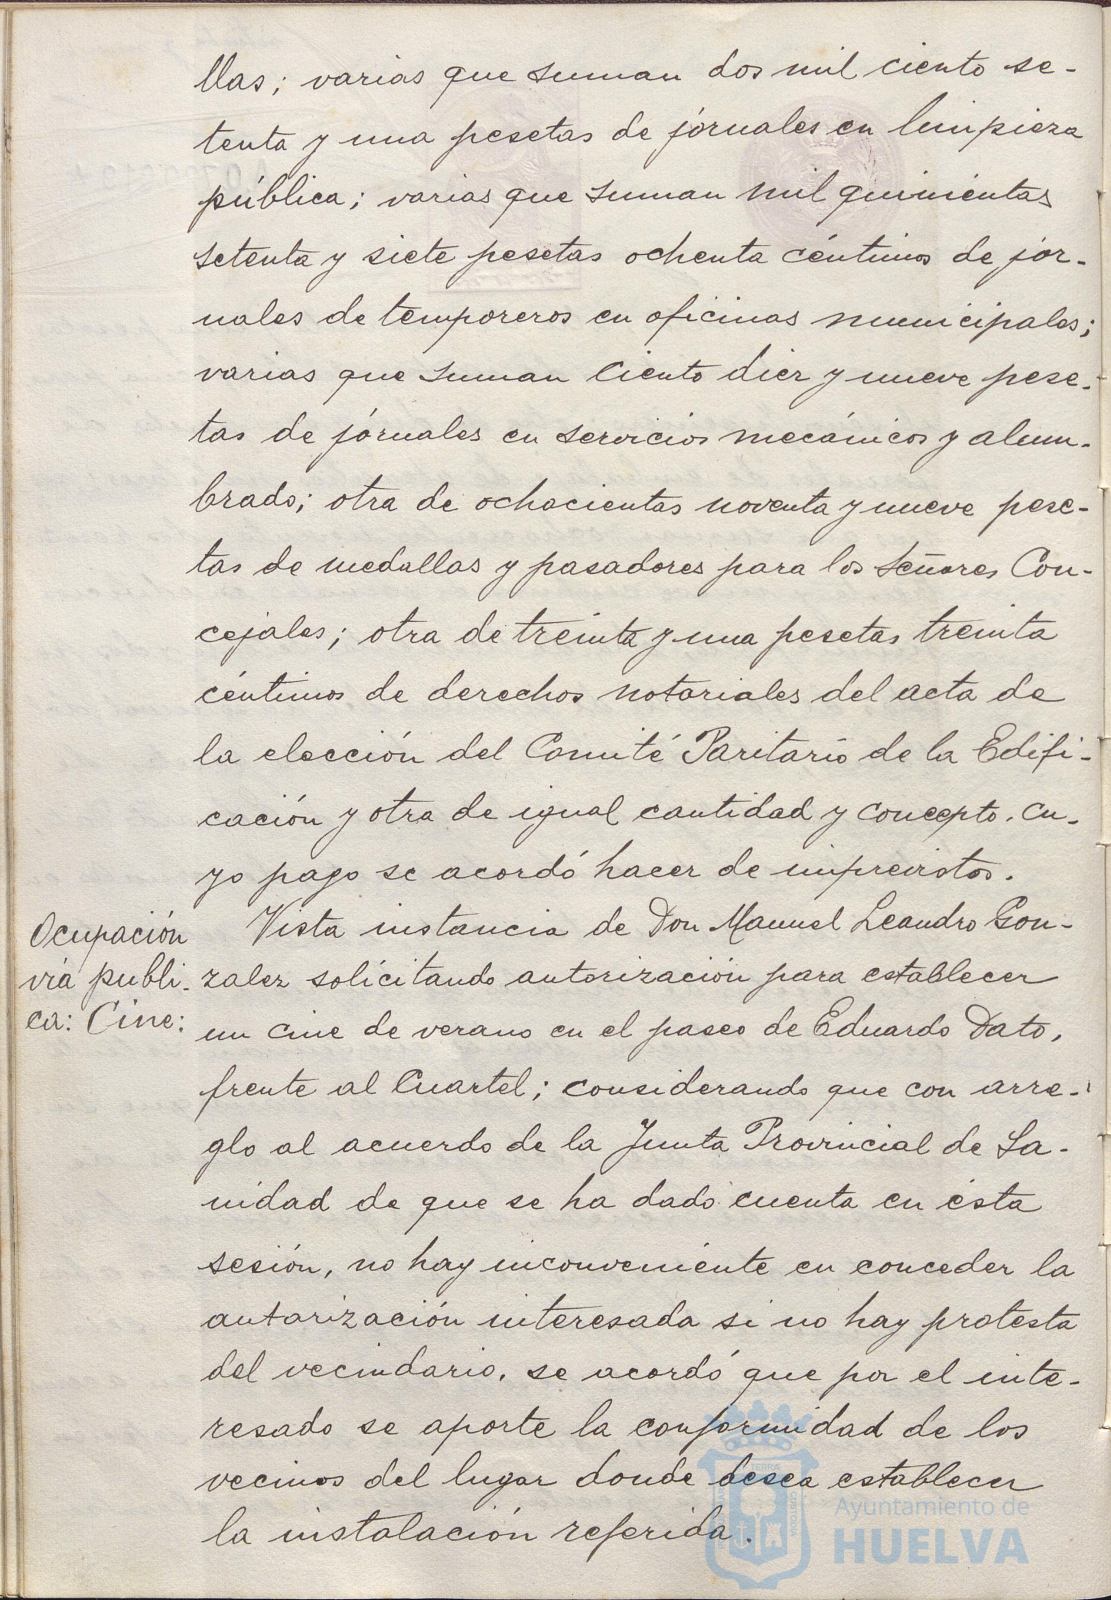 llas; varias que suman dos mil ciento se-
tenta y una pesetas de jórnales en limpieza
pública; varias que suman mil quinientas
setenta y siete pesetas ochenta céntimos de jor-
nales de temporeros en oficinas municipales;
varias que suman ciento diez y nueve pese-
tas de jórnales en servicios mecánicos y alum-
brado; otra de ochocientas noventa y nueve pese-
tas de medallas y pasadores para los señores Con-
cejales; otra de treinta y una pesetas treinta
céntimos de derechos notariales del acta de
la elección del Comité Paritario de la Edifi-
cación y otra de igual cantidad y concepto, cu-
yo pago se acordó hacer de imprevistos.
Ocupación
vía públi-
ca: Cine:
Vista instancia de Don Manuel Leandro Gon-
zalez solicitando autorización para establecer
un cine de verano en el paseo de Eduardo Dato,
frente al Cuartel; considerando que con arre-
glo al acuerdo de la Junta Provincial de Sa-
nidad de que se ha dado cuenta en ésta
sesión, no hay inconveniente en conceder la
autorización interesada si no hay protesta
del vecindario, se acordó que por el inte-
resado se aporte la conformidad de los
vecinos del lugar donde desea establecer
la instalación referida.
Ayuntamiento de
HUELVA